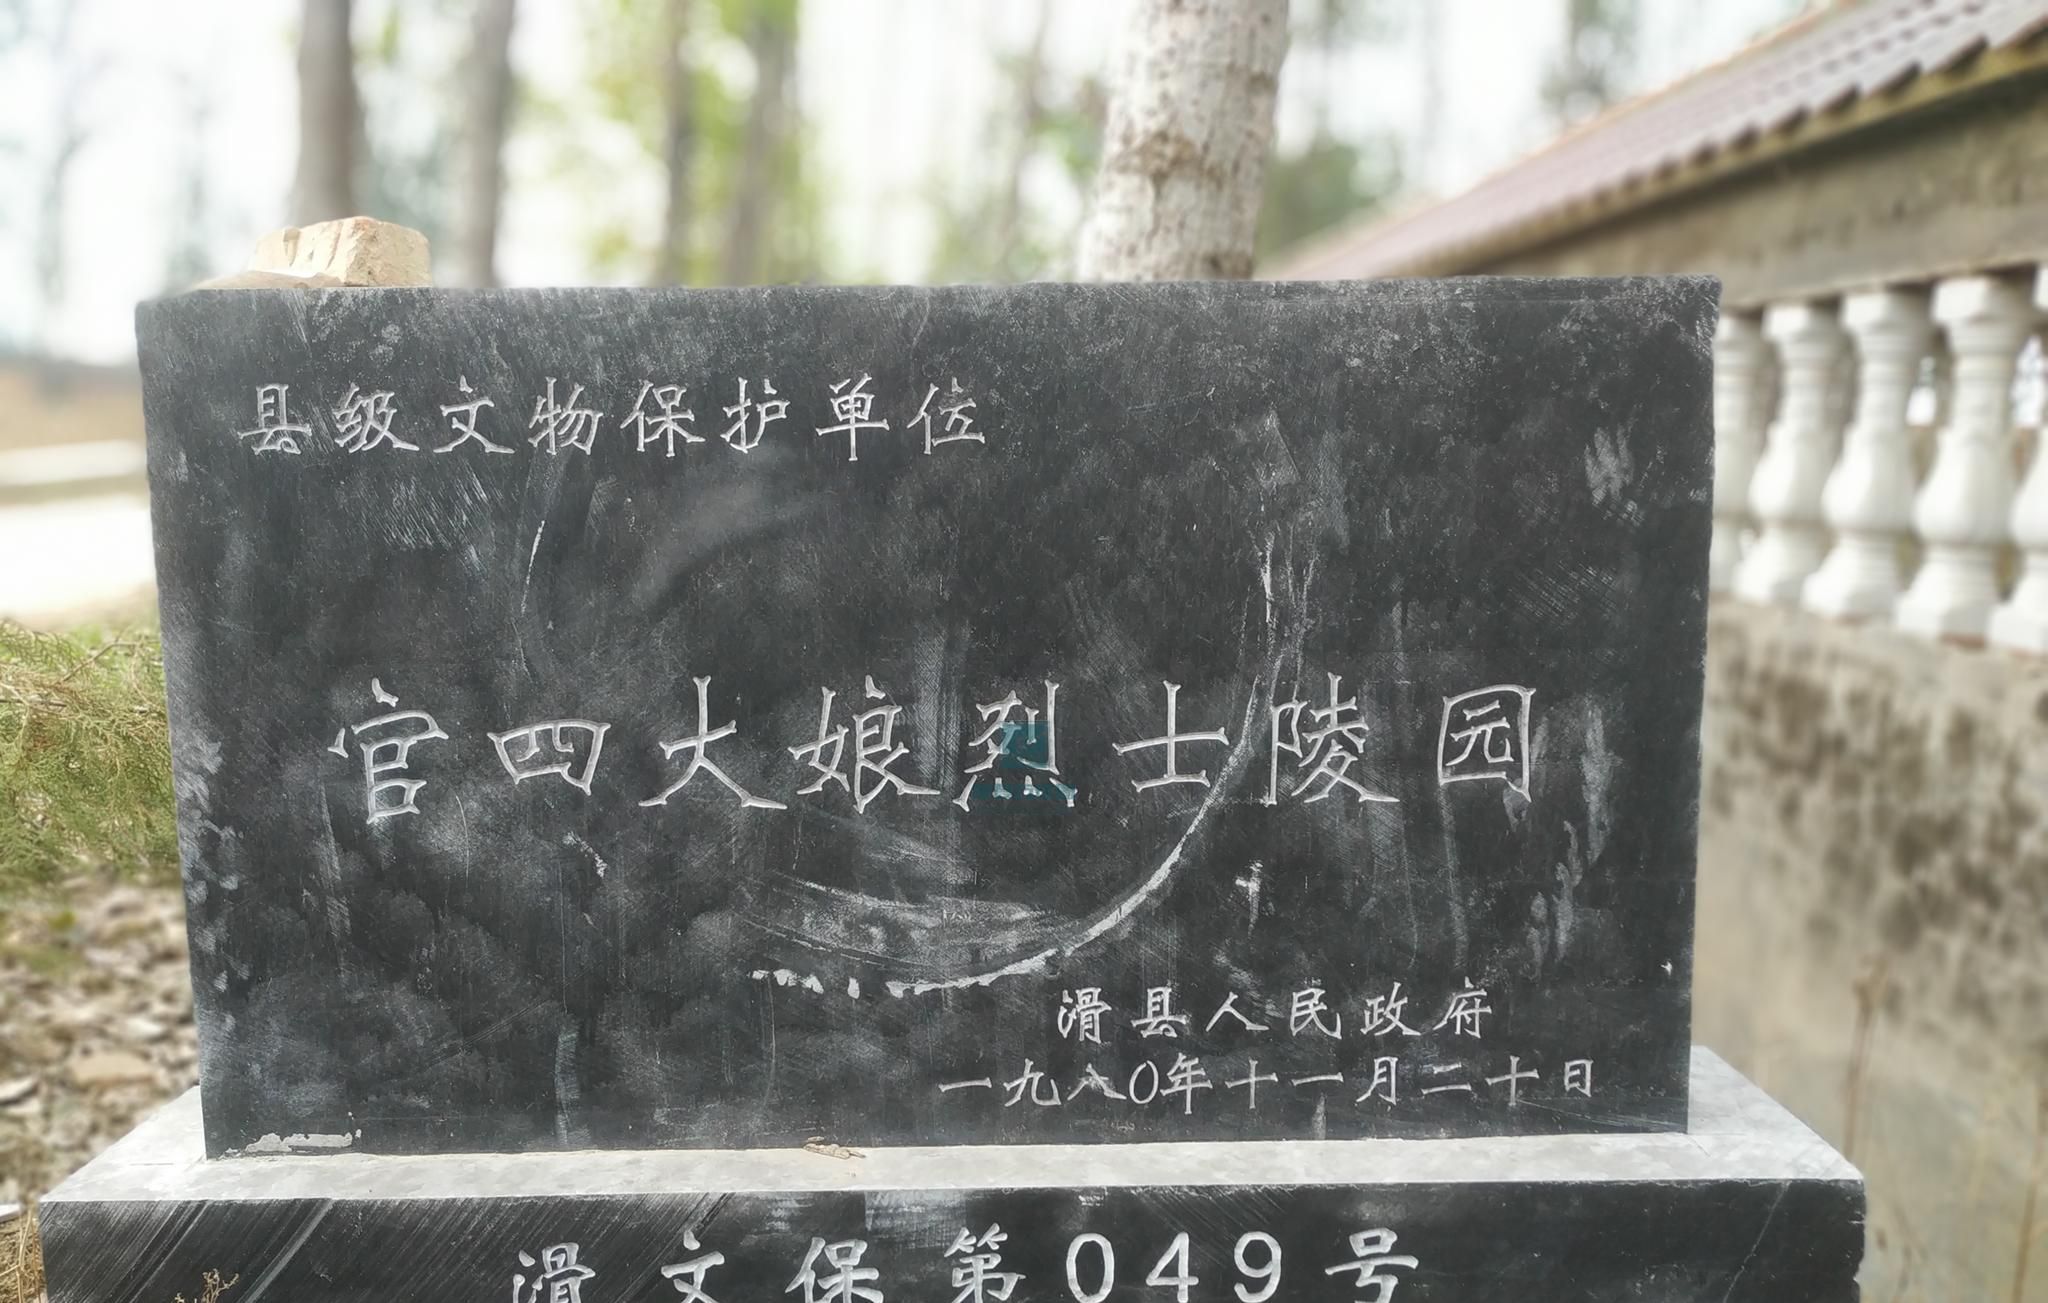 县级文物保护单位
官四大娘烈士陵园
滑县人民政府
一九八0年十一月二十日
滑文保第049号